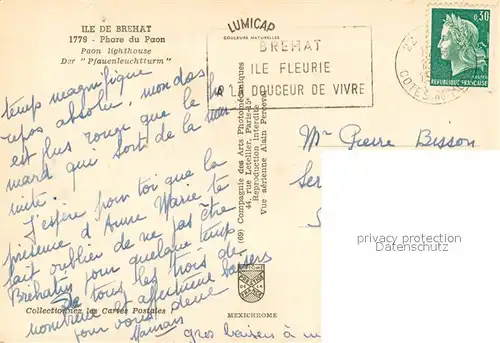 ILE DE BREHAT
1779 - Phare du Paon
Paon lighthouse
Der "Pfauenleuchtturm"
LUMICAP
COULEURS NATURELLES
BREHAT
ILE FLEURIE
LA DOUCEUR DE VIVRE
0,30
REPUBLIQUE FRANÇAISE
COTES DU
temps magnifique
repos absolu, mon dos
est plus rouge que le ho
mard qui sort de la mar
mite.
J'espère pour toi que la
présence d'Anne Marie te
fait oublier de ne pas être
Bréhatin pour quelque temps
De tous les trois de
nombreux et affectueux baisers
pour vous deux
Maman
gros baisers à
(69) Compagnie des Arts Photomécaniques
44, rue Letellier, Paris-15e
Reproduction interdite
Vue aérienne Alain Perceval
Mr Pierre Bisson
Ser
Collectionnez les Cartes Postales
MEXICHROME
protection watermark
www.delcampe.net